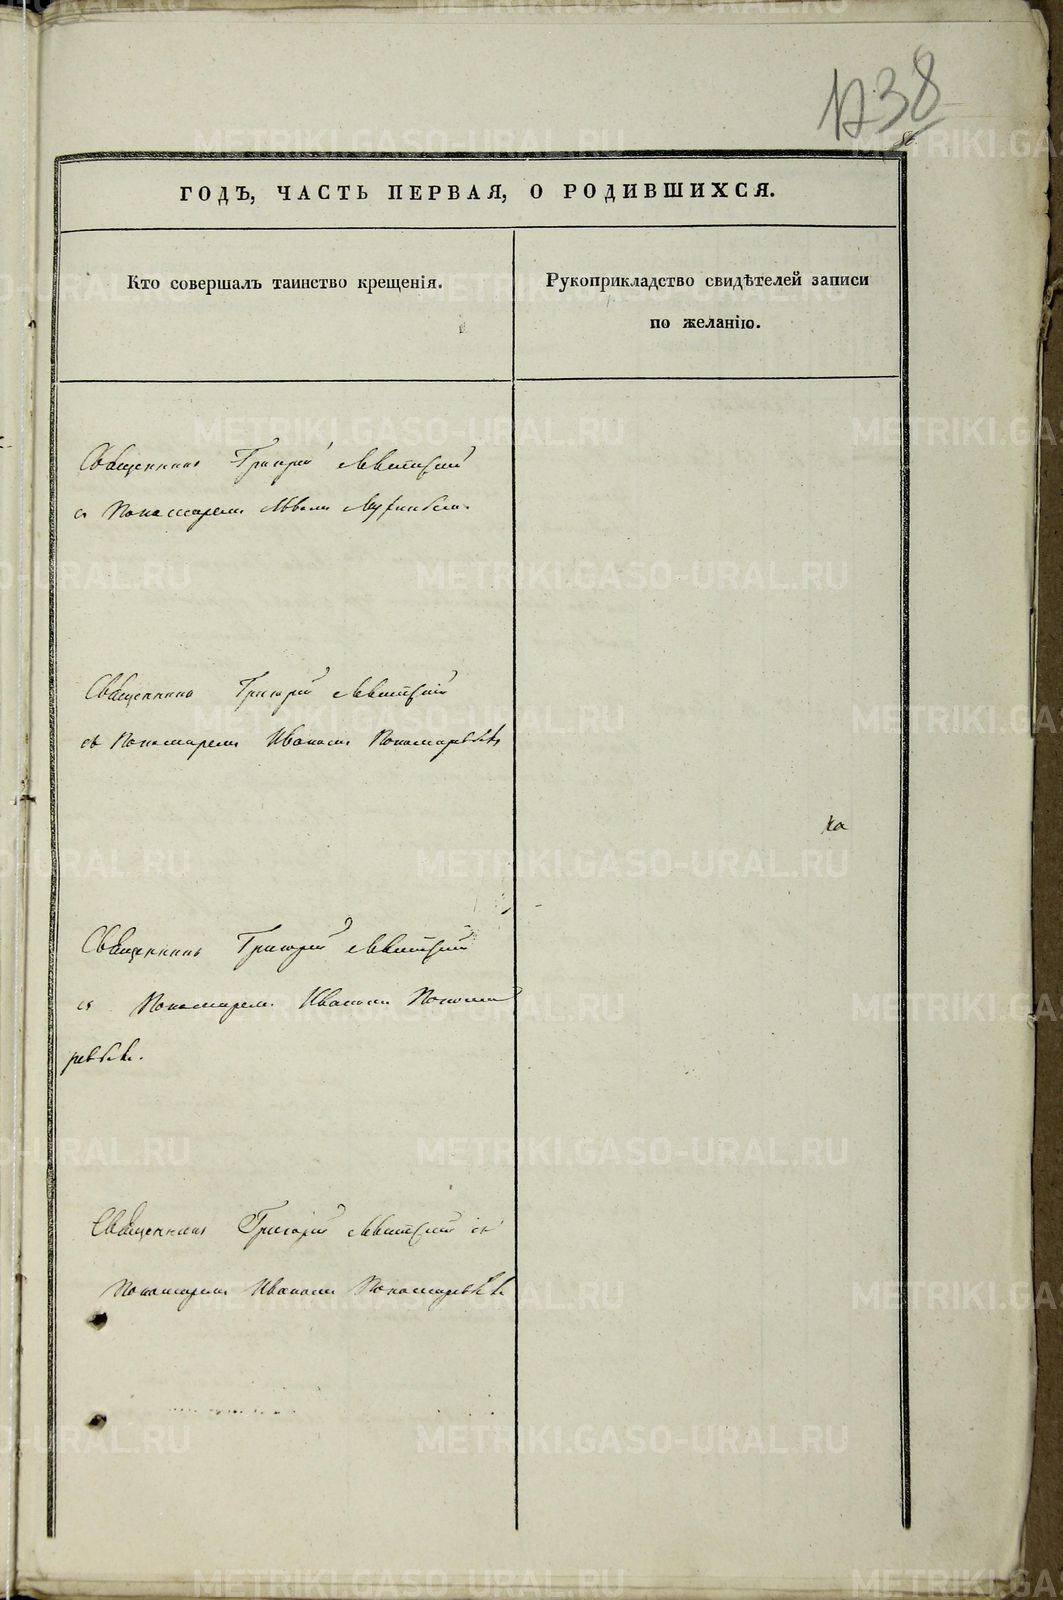 1238
ГОДЪ, ЧАСТЬ ПЕРВАЯ, О РОДИВШИХСЯ.
Кто совершалъ таинство крещенія.
Рукоприкладство свидѣтелей записи
по желанію.
Священникъ Григорій Левитскій
съ Пономаремъ
Священникъ Григорій Левитскій
съ Пономаремъ Иваномъ Пономаревымъ
ка
Священникъ Григорій Левитскій
съ Пономаремъ Иваномъ Понома
ревымъ.
Священникъ Григорій Левитскій съ
Пономаремъ Иваномъ Пономаревымъ
METRIKI.GASO-URAL.RU